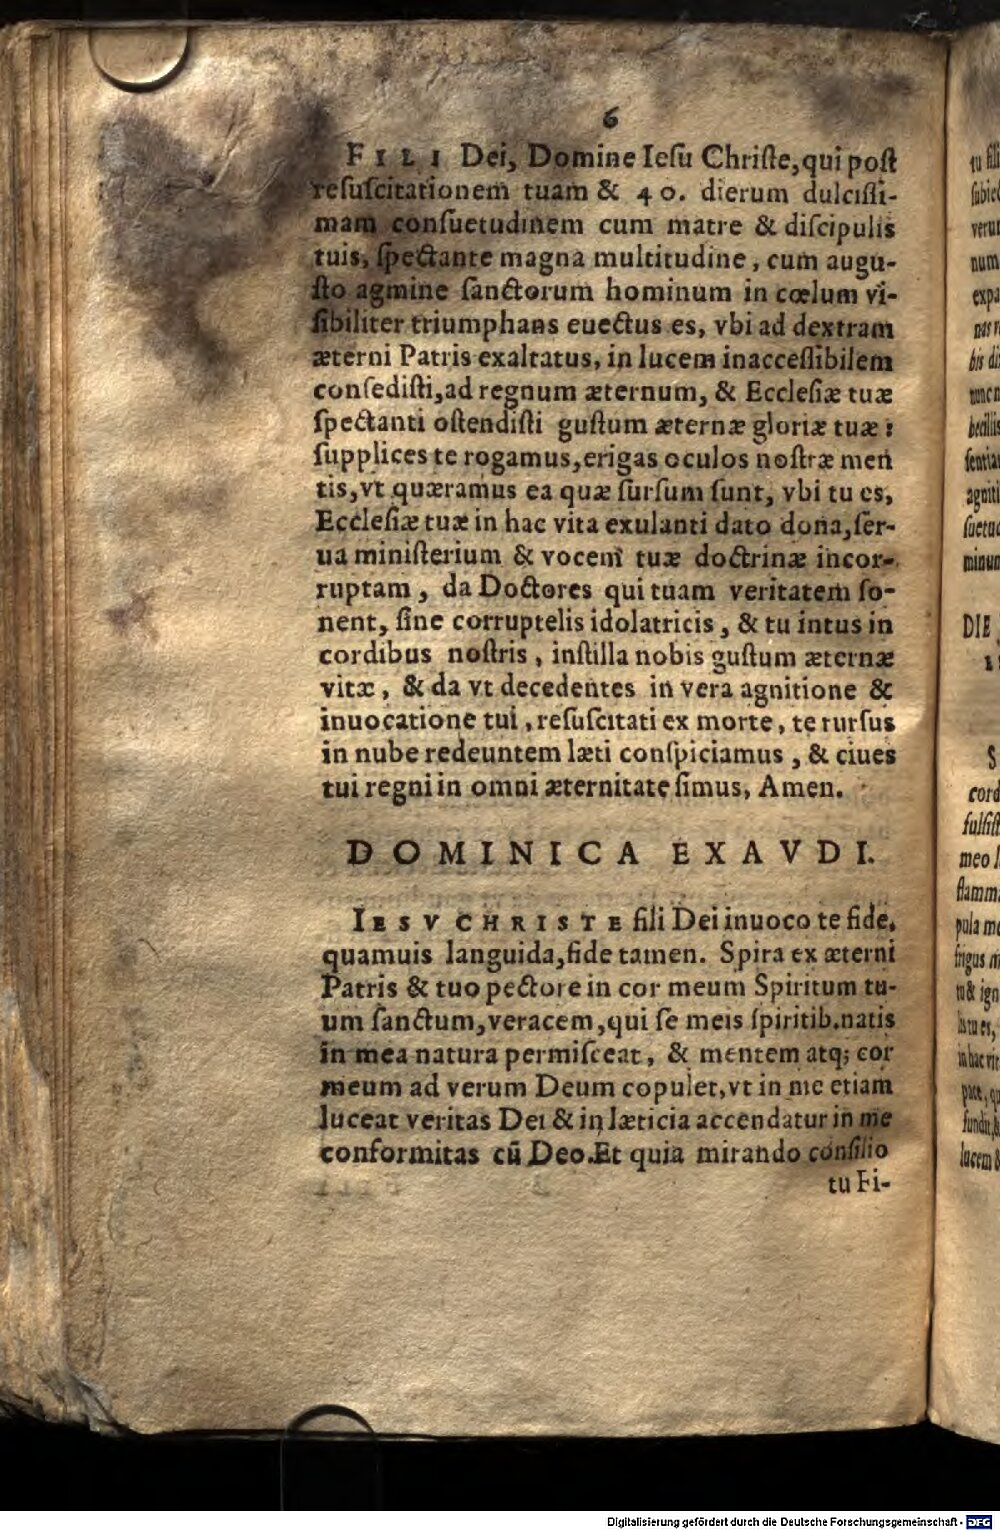 6
FILI Dei, Domine Ieſu Chriſte, qui poſt
reſuſcitationem tuam & 40. dierum dulciſſi-
mam conſuetudinem cum matre & diſcipulis
tuis, ſpectante magna multitudine, cum augu-
ſto agmine ſanctorum hominum in cœlum vi-
ſibiliter triumphans euectus es, vbi ad dextram
æterni Patris exaltatus, in lucem inacceſſibilem
conſediſti, ad regnum æternum, & Eccleſiæ tuæ
ſpectanti oſtendiſti guſtum æternæ gloriæ tuæ:
ſupplices te rogamus, erigas oculos noſtræ men
tis, vt quæramus ea quæ ſurſum ſunt, vbi tu es,
Eccleſiæ tuæ in hac vita exulanti dato dona, ſer-
ua miniſterium & vocem tuæ doctrinæ incor-
ruptam, da Doctores qui tuam veritatem ſo-
nent, ſine corruptelis idolatricis, & tu intus in
cordibus noſtris, inſtilla nobis guſtum æternæ
vitæ, & da vt decedentes in vera agnitione &
inuocatione tui, reſuſcitati ex morte, te rurſus
in nube redeuntem læti conſpiciamus, & ciues
tui regni in omni æternitate ſimus, Amen.
DOMINICA EXAVDI.
IESV CHRISTE fili Dei inuoco te fide,
quamuis languida, fide tamen. Spira ex æterni
Patris & tuo pectore in cor meum Spiritum tu-
um ſanctum, veracem, qui ſe meis ſpiritib. natis
in mea natura permiſceat, & mentem atq; cor
meum ad verum Deum copulet, vt in me etiam
luceat veritas Dei & in læticia accendatur in me
conformitas cū Deo. Et quia mirando conſilio
tu Fi-
tu fili
verum
num
expa
bis di
tunc n
ſentia
agniti
ſuetud
minum
DIE
S
cord
fulſiſt
meo I
flamma
pula me
frigus
& ign
in hac vit
pace, q
lucem &
Digitalisierung gefördert durch die Deutsche Forschungsgemeinschaft - DFG